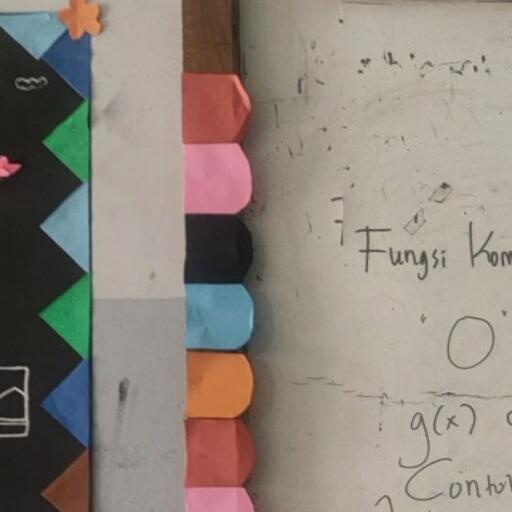 Fungsi Kom
" O "
g(x)
Contoh